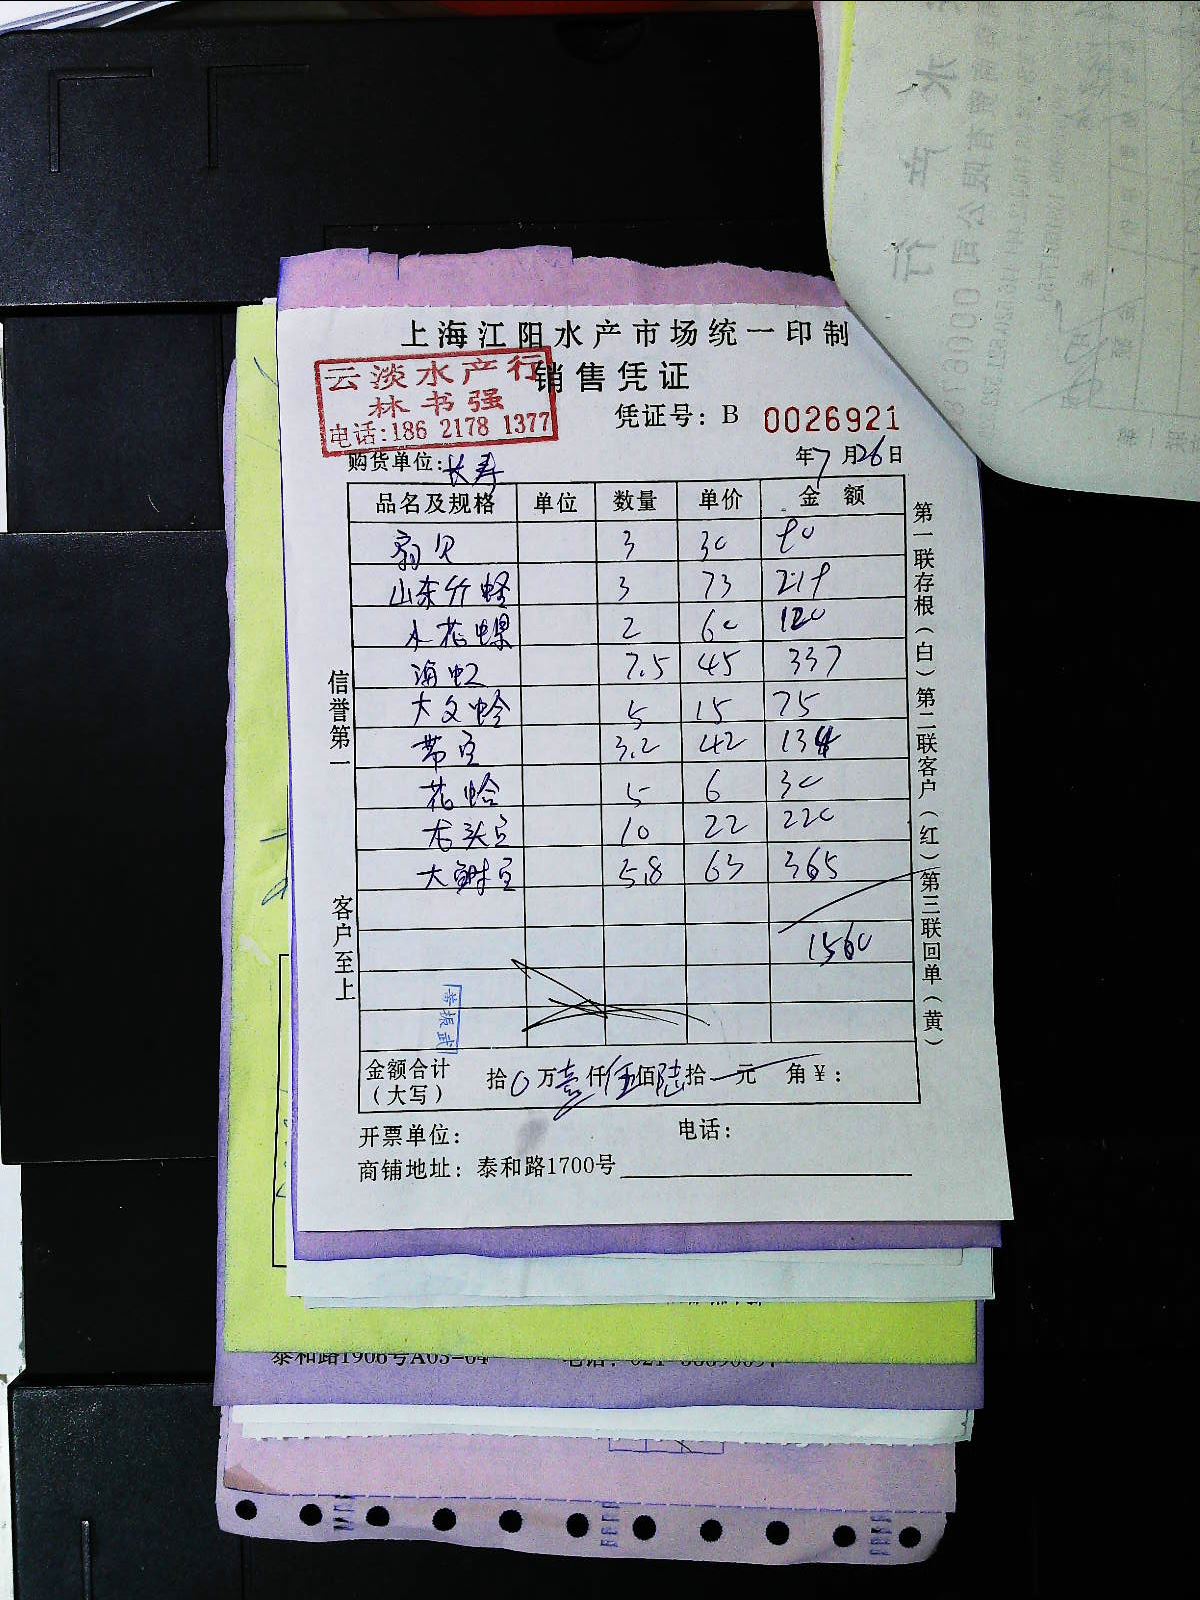 上海江阳水产市场统一印制
销售凭证
云淡水产行
林书强
电话:186 2178 1377
凭证号: B 0026921
购货单位:长寿 年7月26日
品名及规格 单位 数量 单价 金额
扇贝 3 30 90
山东竹蛏 3 73 219
水花螺 2 60 120
海虹 7.5 45 337
大文蛤 5 15 75
带豆 3.2 42 134
花蛤 5 6 30
龙头豆 10 22 220
大鲜豆 5.8 63 365
1560
信誉第一
客户至上
第一联存根(白)第二联客户(红)第三联回单(黄)
金额合计 拾0万壹仟伍佰陆拾 元 角¥:
(大写)
开票单位: 电话:
商铺地址: 泰和路1700号
泰和路1906号A03-04